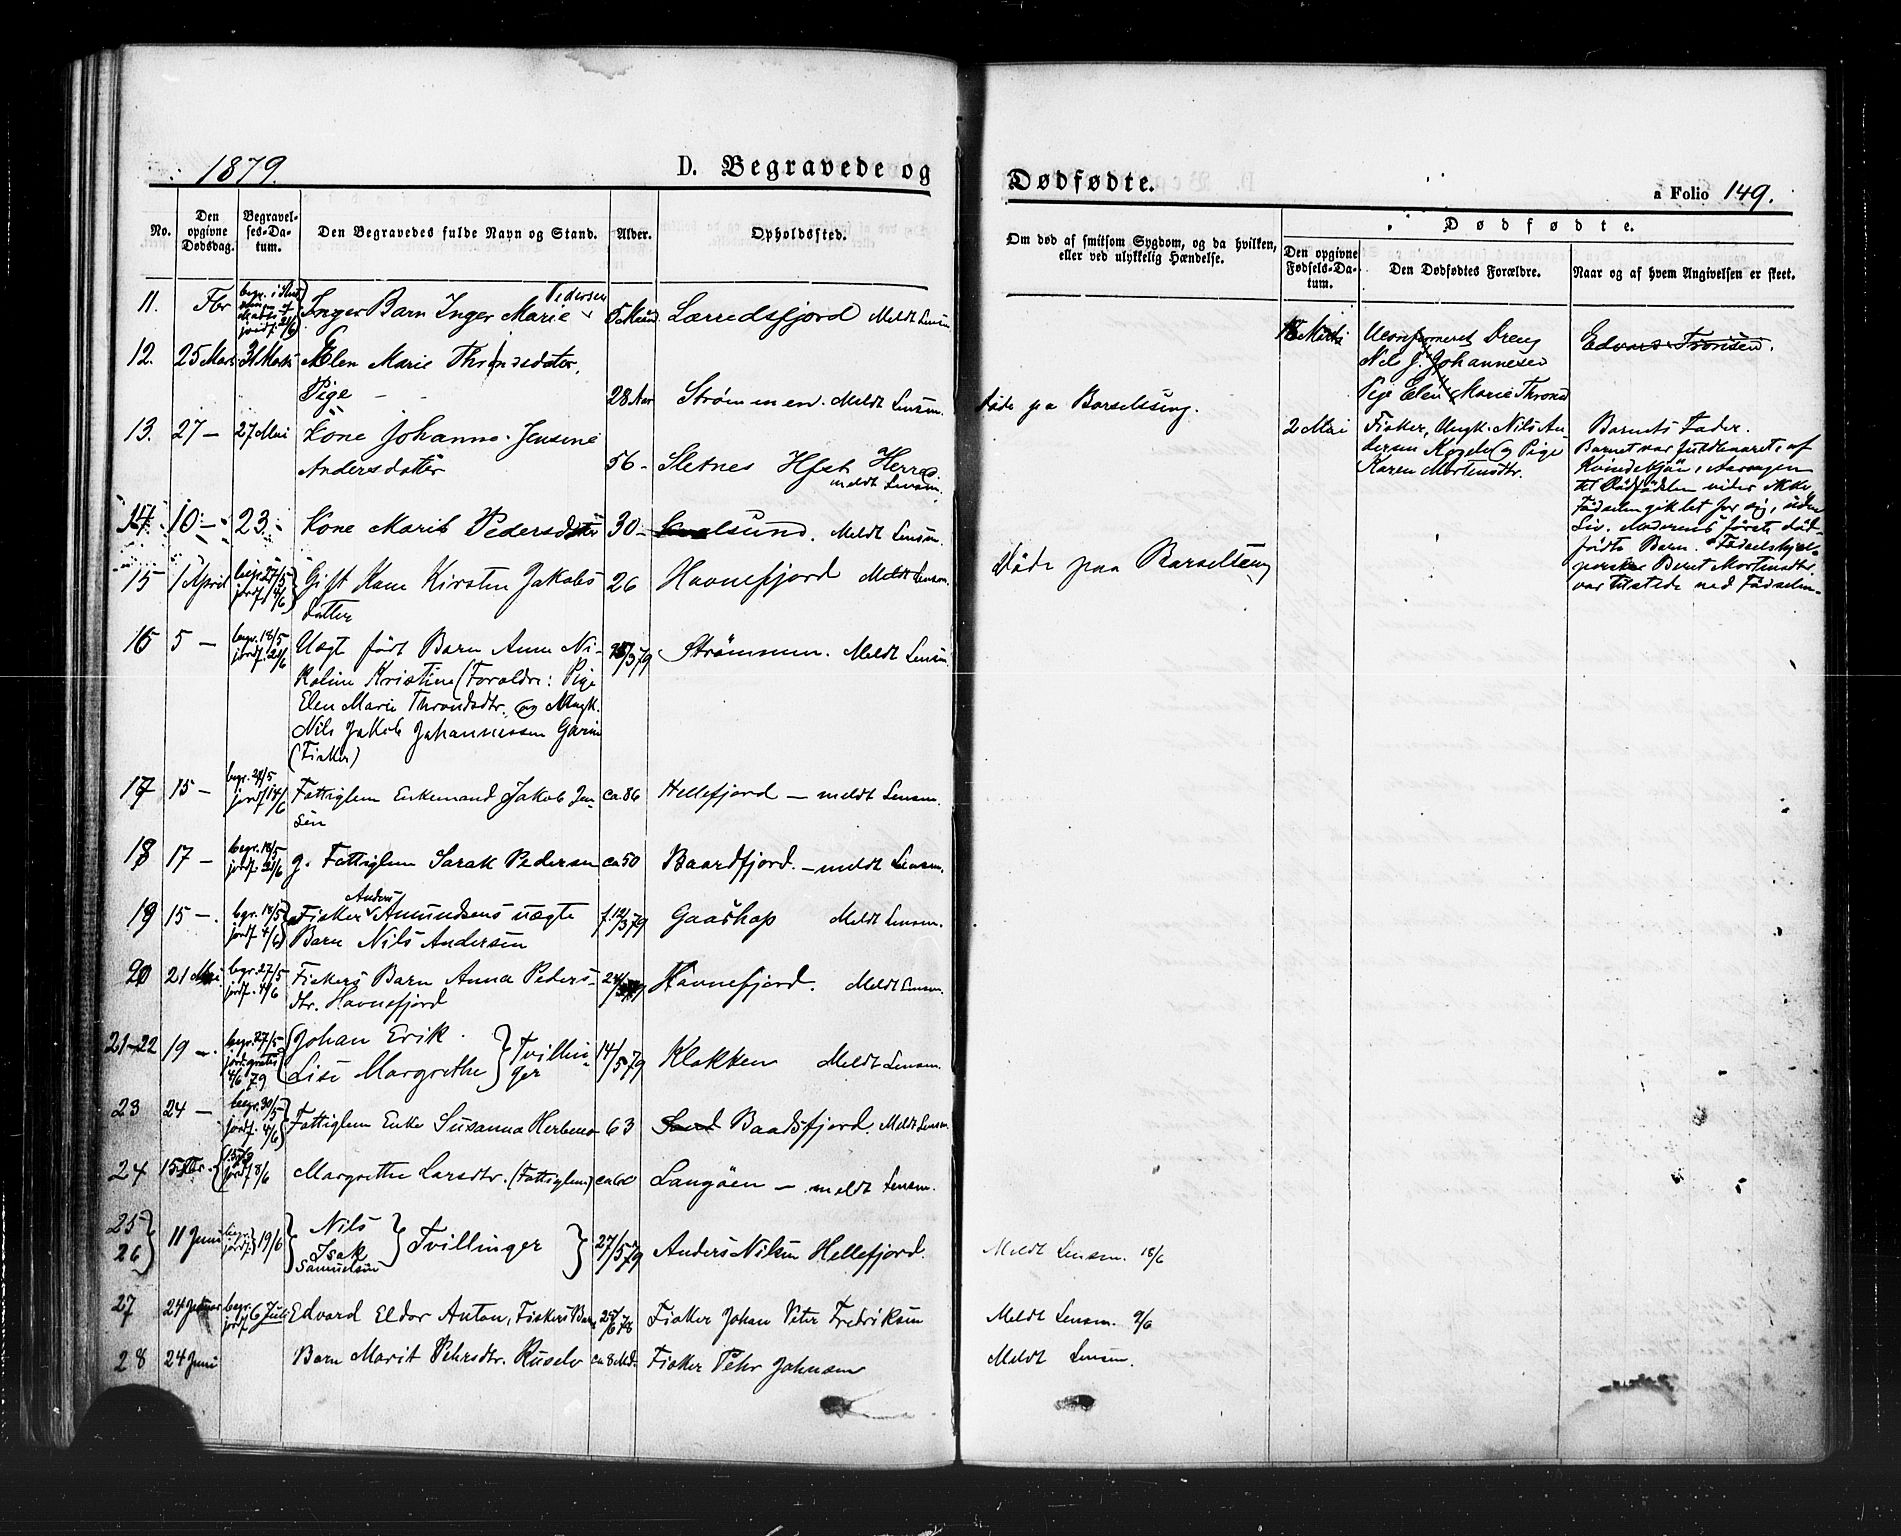 1879.
D. Begravede og
No.
Den opgivne Dødsdag.
Begravelses-Datum.
Den Begravedes fulde Navn og Stand.
Alder.
Opholdssted.
11. Fbr Barn Inger Marie Pedersen Lærredsfjord Meldt Lensm.
12. 25 Marts 31 Marts Elen Marie Throndsdatter,
Pige 28 Aar Strømmen. Meldt Lensm.
13. 27 — 27 Mai Kone Johanne Jensine
Andersdatter 56 - Sletnes Hfst Herred
meldt Lensm.
14. 10 — 23 - Kone Marit Pedersdatter 30 - Meldt Lensm.
15 1 April begr. 27/5 Gift Kone Kirsten Jakobs 26 Havnefjord Meldt Lensm.
jordf. 4/6 datter
16 5 — begr. 18/5 Uægt født Barn Anne Ni- Strømmen. Meldt Lensm.
jordf. 21/6 koline Kristine (Foraldre: Pige
Elen Marie Throndsdtr. og Ungk.
Nils Jakob Johannessen
(Fisker)
17 15 — Fattiglem Enkemand Jakob Jen- ca. 86 Hellefjord — meldt Lensm.
jordf. 14/6 sen
18 17 — begr. 18/5 g. Fattiglem Sarak Pedersen ca 50 Baardfjord. — meldt Lensm.
jordf. 21/6
19 15 —. begr. 18/5 Fisker Anders Amundsens uægte f. 12/3 79 Gaashop Meldt Lensm.
jordf. 4/6 Barn Nils Andersen
20 21 Mai. begr. 27/5 Fiskers Barn Anna Peders- Havnefjord. Meldt Lensm.
jordf. 4/6 dtr. Havnefjord
21-22 19 —. begr. 27/5 Johan Erik. Tvillin- 14/5 79 Klokken Meldt Lensm.
jord. gratis Lise Margrethe ger
4/6 79
23 24 — begr. 30/5 Fattiglem Enke Susanna 63 Baadsfjord. Meldt Lensm.
jordf. 4/6
24 jordf 8/6 Margrethe Larsdtr. (Fattiglem) ca 60 Langøen — meldt Lensm.
25 Nils
26 11 Juni begr. jordf. 19/6 Isak Tvillinger 27/5 79 Anders Nilsen Hellefjord.
Samuelsen
27 begr. jordf. 6 Juli Edvard Eldor Anton, Fiskers Barn Fisker Johan Peter Fredriksen
28 24 Juni Barn Marit Pehrsdtr. ca 8 Md. Fisker Pehr Johnsen
Dødfødte.
a Folio 149.
Om død af smitsom Sygdom, og da hvilken,
eller ved ulykkelig Hændelse.
Dødfødte.
Den opgivne Fødsels-Datum.
Den Dødfødtes Forældre.
Naar og af hvem Angivelsen er skeet.
Marts Ukonfirmeret Dreng
Nils J. Johannesen
Pige Elen Marie Thronds
Døde pa Barselseng.
2 Mai Fisker, Ungk. Nils An-
dersen og Pige
Karen Mortensdtr.
Barnets Fader.
Barnet var fuldbaaret, af
Kvindekjøn, Aarsagen
til Dødfødslen vides ikke.
Fødselen gik let for sig, uden
Liv. Moderens første død-
fødte Barn. Fødselshjæl-
perske Beret Mortensdtr.
var tilstede ved Fødselen.
Døde paa Barselseng
Meldt Lensm. 18/6
Meldt Lensm. 9/6
Meldt Lensm.